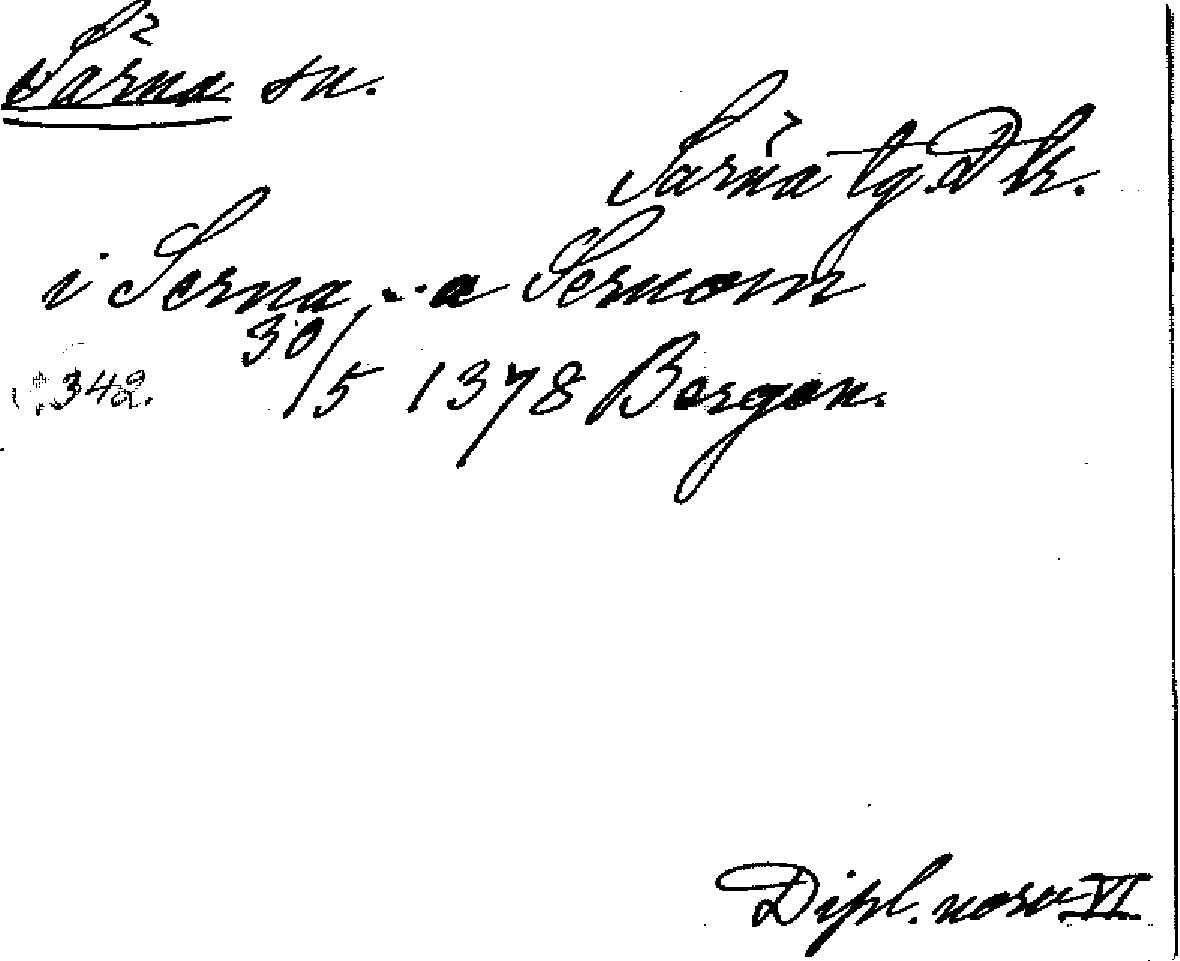 Särna sn.
Särna tg. Dlr.
i Serna, -- a Sernom
s. 342. 30/5 1378 Bergen.
Dipl. norv VI